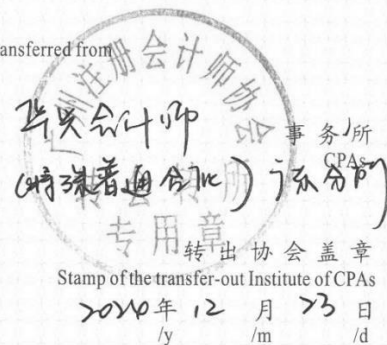 ansferred from
广州注册会计师协会
华兴会计师
事务所
CPAs
(特殊普通合伙) 广东分所
转会转所
专用章
转出协会盖章
Stamp of the transfer-out Institute of CPAs
2020年 12 月 23 日
/y /m /d